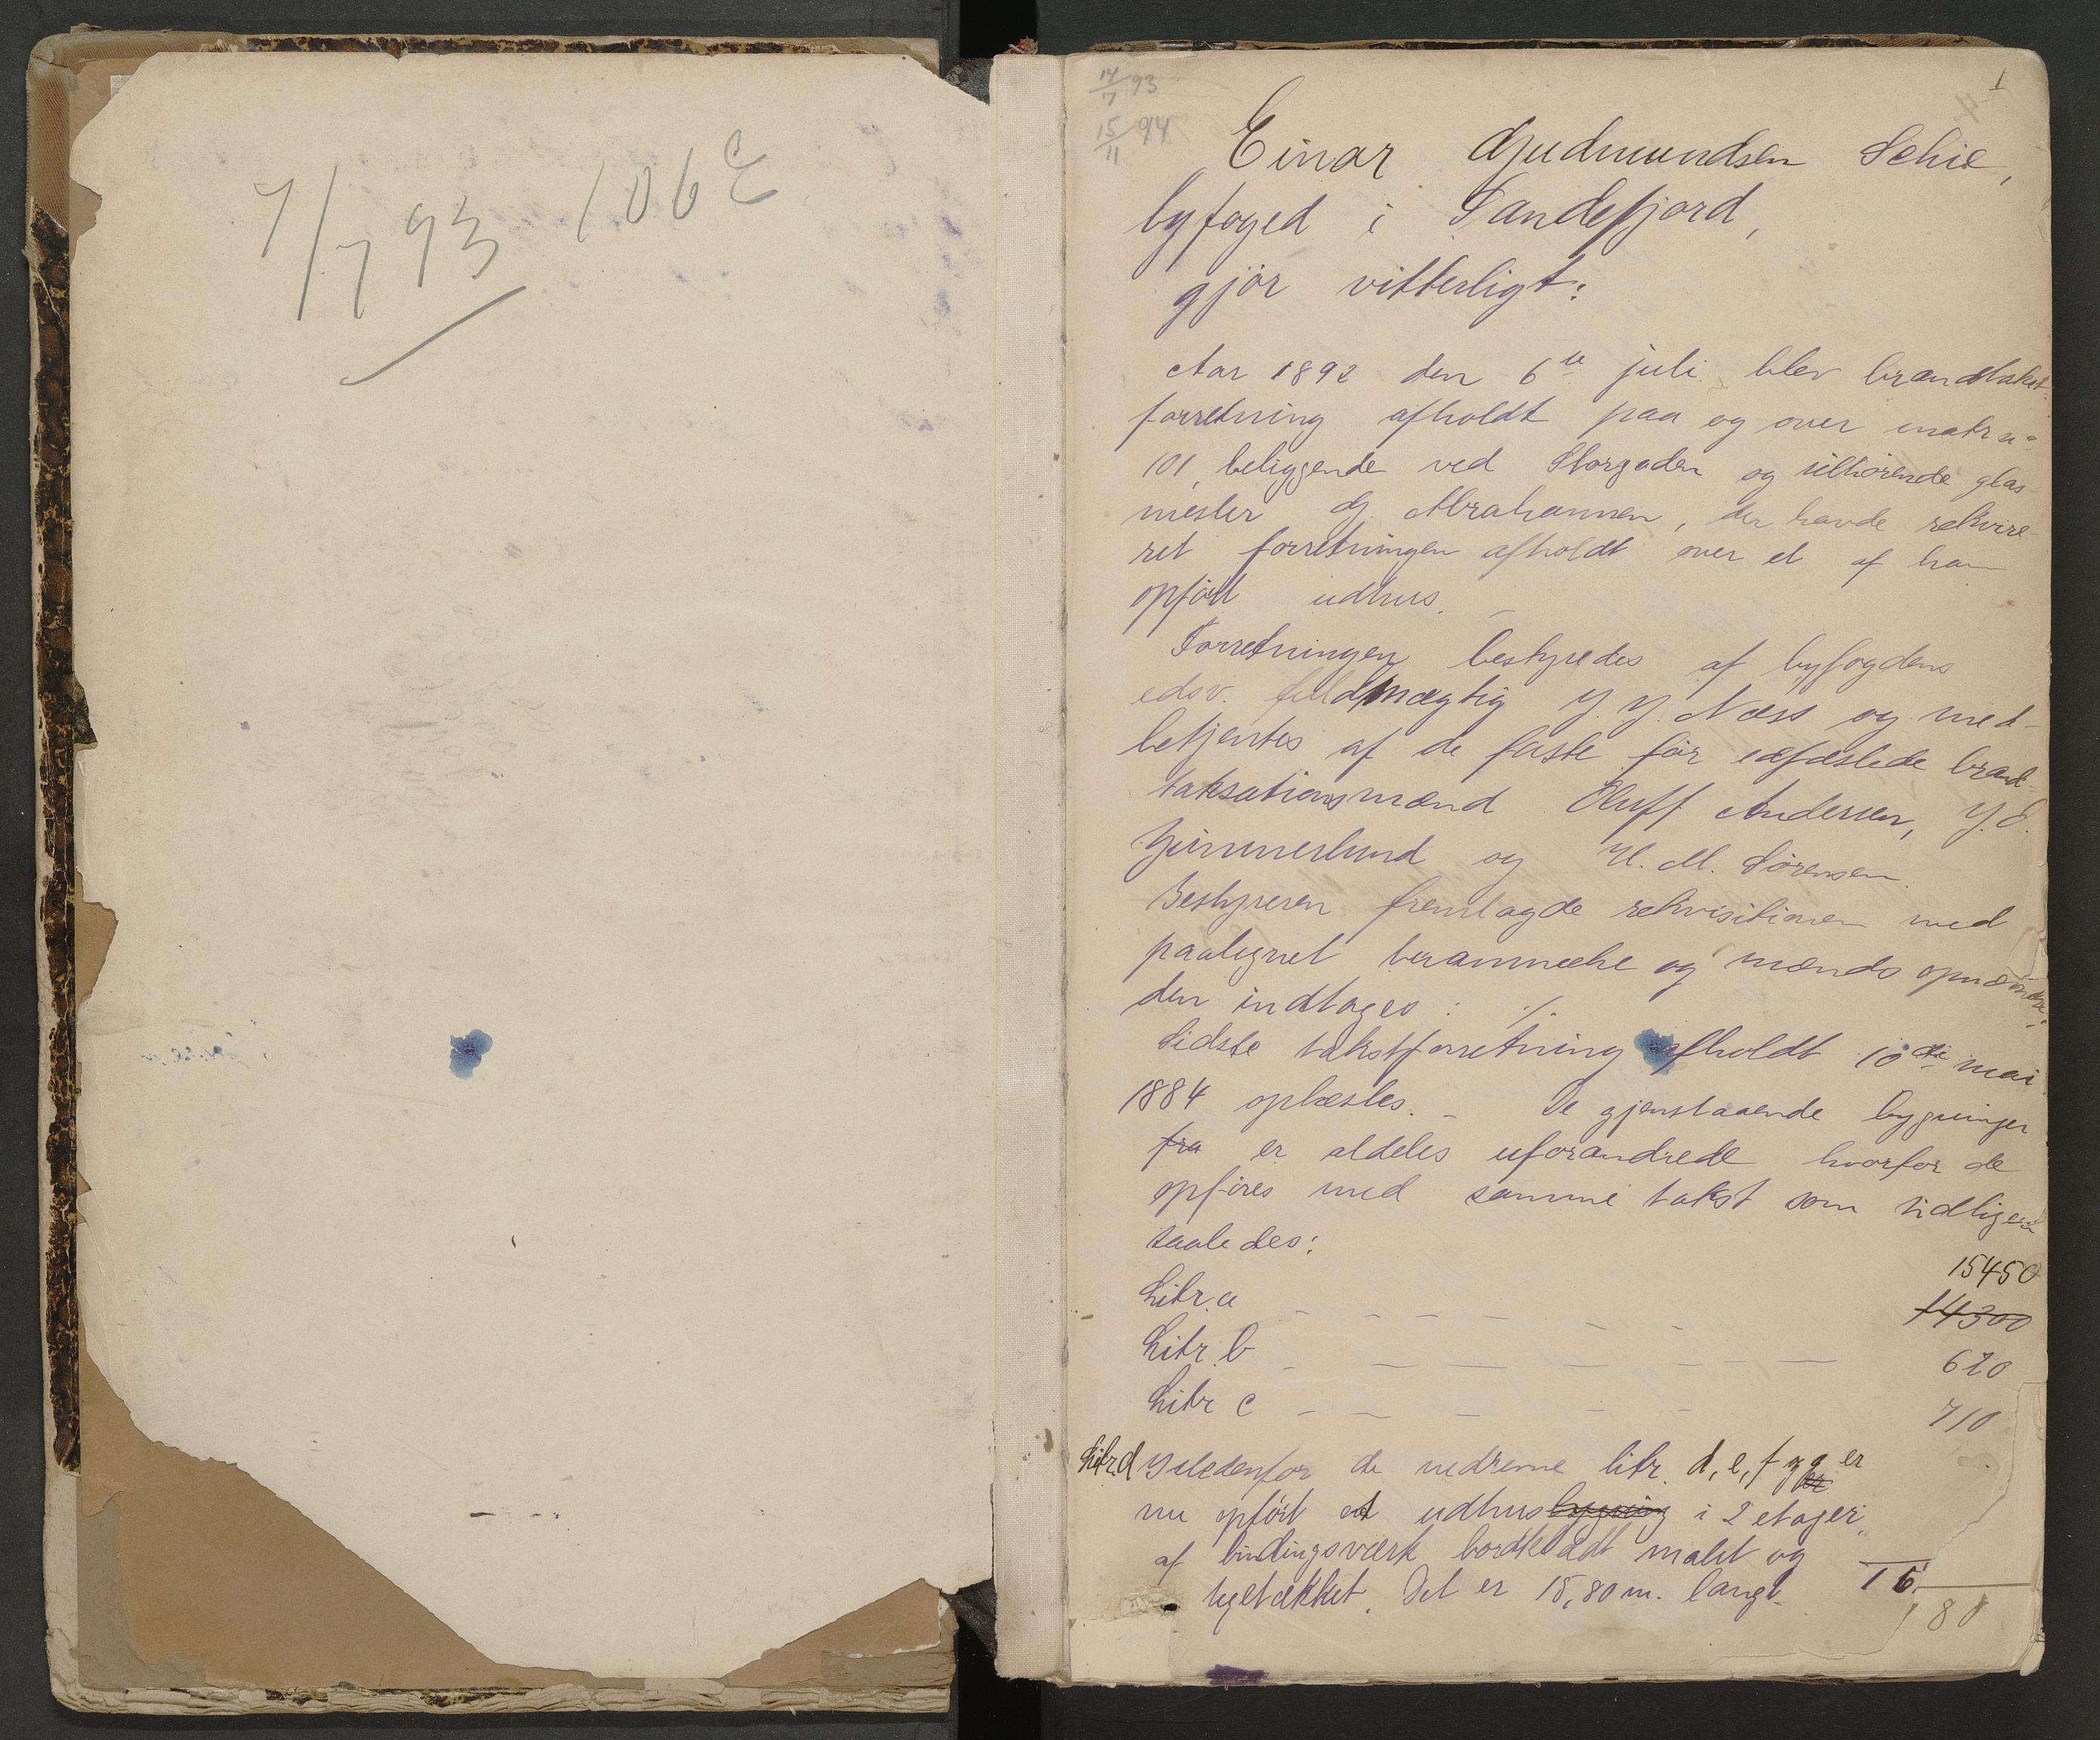 7/7 93 106
14/7 93
15/11 94
1
Einar Gudmundsen Schie,
byfoged i Sandefjord,
gjør vitterligt:
Aar 1892 den 6te juli blev brandtakst-
forretning afholdt paa og over matr n°
101, beliggende ved Storgaden og tilhørende glas-
mester G. Abrahamsen, der havde rekvire-
ret forretningen afholdt over et af ham
opført udhus. –
Forretningen bestyredes af byfogdens
edsv. fuldmægtig J. J. Næss og med-
betjentes af de faste før edfæstede brand-
taksationsmænd Oluff Andersen, J. E.
Zimmerlund og H. M. Sørensen.
Bestyreren fremlagde rekvisitionen med
paategnet berammelse og mænds opnævnelse
den indtages: ./.
Sidste takstforretning afholdt 10de mai
1884 oplæstes. – De gjenstaaende bygninger
fra er aldeles uforandrede hvorfor de
opføres med samme takst som tidligere
saaledes:
15450
Litr. a – – – – – – 14300
Litr. b – – – – – – – 620
Litr c – – – – – 710
Litr. d Istedenfor de nedrevne litr. d, e, f og g er
er
nu opført et udhusbygning i 2 etager,
af bindingsværk bordklædt malet og
tegltækket. Det er 15,80 m. langt